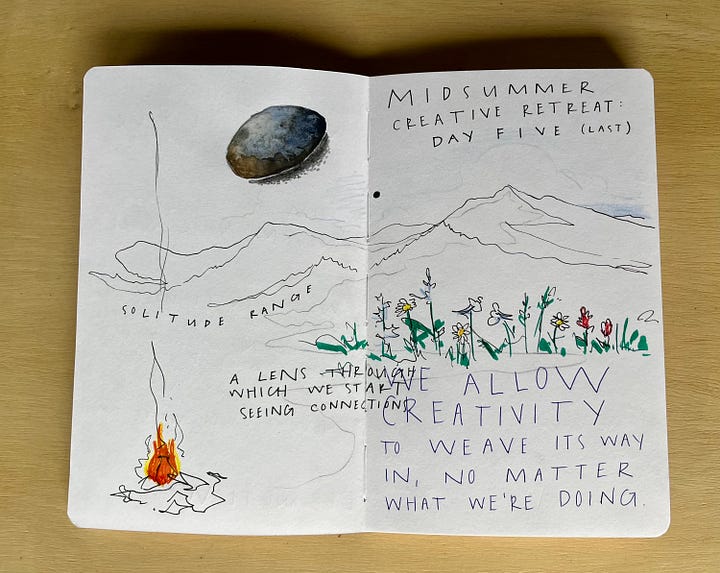 SOLITUDE RANGE
A LENS THROUGH
WHICH WE START
SEEING CONNECTIONS
MIDSUMMER
CREATIVE RETREAT:
DAY FIVE (LAST)
WE ALLOW
CREATIVITY
TO WEAVE ITS WAY
IN, NO MATTER
WHAT WE'RE DOING.